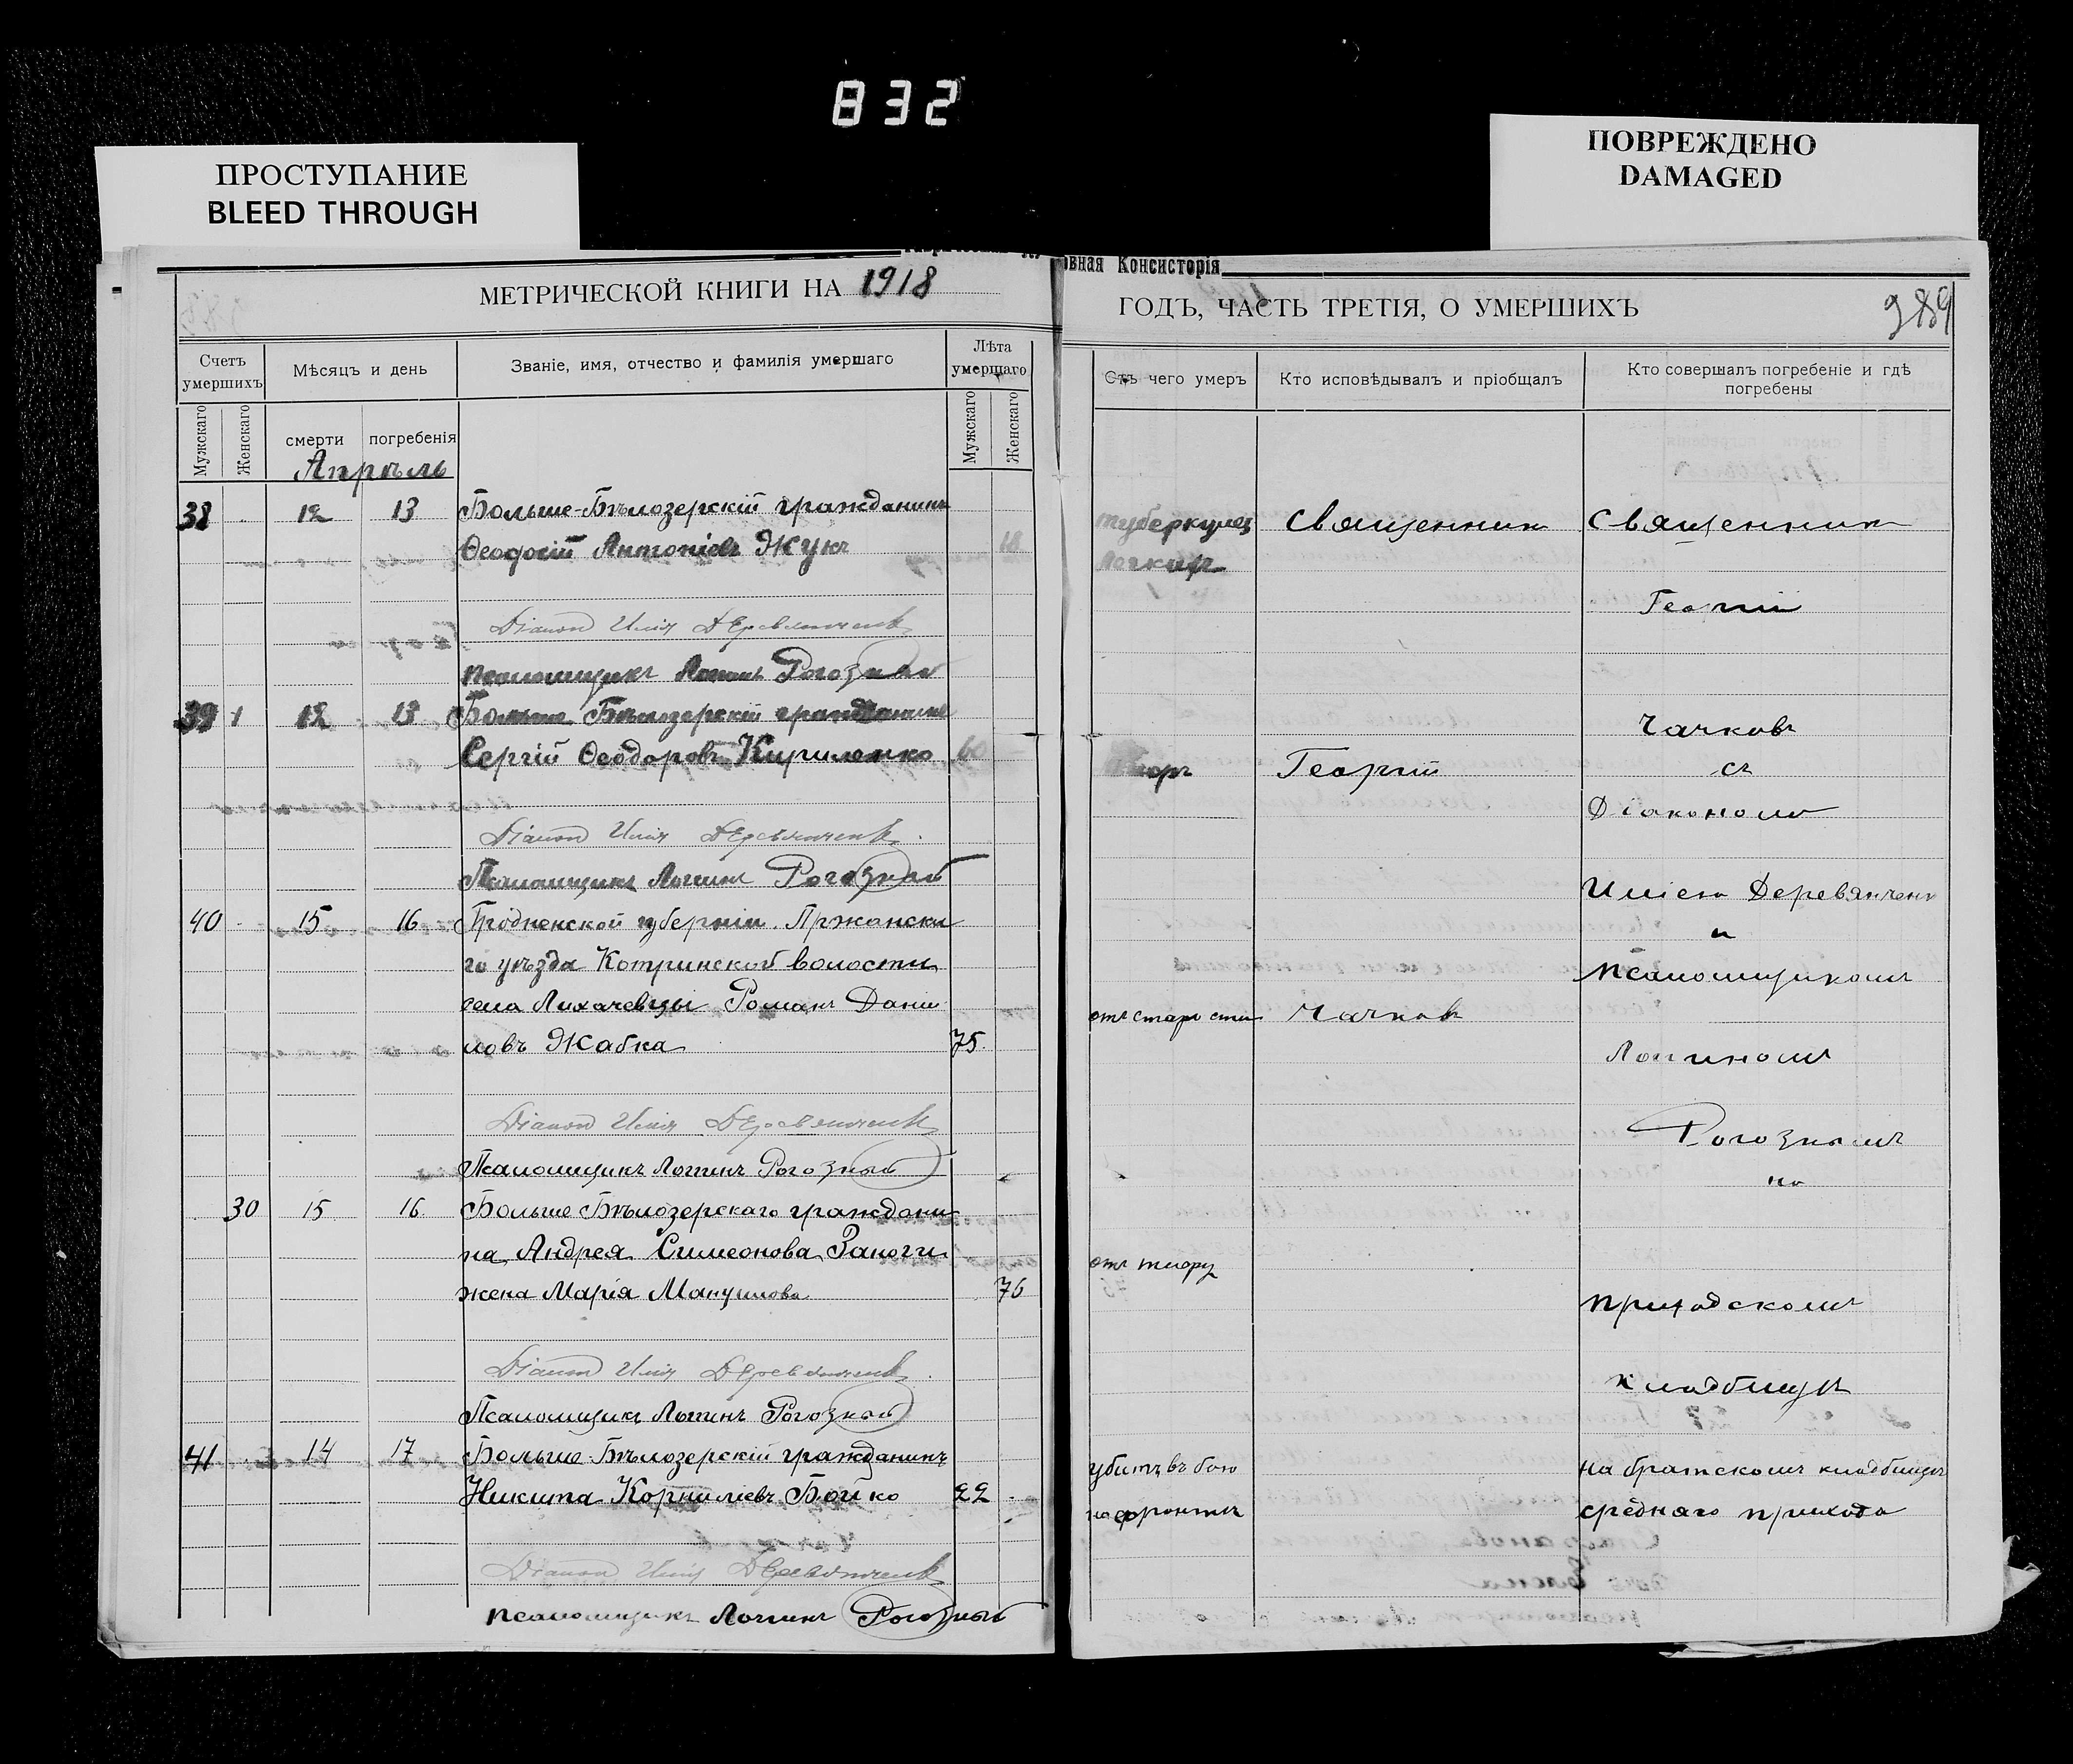 832
ПРОСТУПАНИЕ
BLEED THROUGH
ПОВРЕЖДЕНО
DAMAGED
овная Консисторія
МЕТРИЧЕСКОЙ КНИГИ НА 1918
Счетъ умершихъ
Мѣсяцъ и день
Званіе, имя, отчество и фамилія умершаго
Лѣта умершаго
Мужскаго
Женскаго
смерти
погребенія
Мужскаго
Женскаго
Апрѣль
38 12 13 Больше-Бѣлозерскій гражданинъ
Ѳеодосій Антоніевъ Жукъ 18
Діакон Илія Деревянченк
псаломщикъ Логинъ Рогозный
39 1 12 13 Больше Бѣлозерскій гражданинъ
Сергій Ѳеодоровъ Кириленко 60
Діакон Илія Деревянченк
Псаломщикъ Логинъ Рогозный
40 15 16 Гродненской губерніи Пржанска
го уѣзда Котринской волости
села Лихачевцы Романъ Даніи
ловъ Жабка 75
Діакон Илія Деревянченк
Псаломщикъ Логинъ Рогозный
30 15 16 Больше Бѣлозерскаго граждани
на Андрея Симеонова Заноги
жена Марія Мануилова 76
Діакон Илія Деревянченк
Псаломщикъ Логинъ Рогозный
41 14 17 Больше-Бѣлозерскій гражданинъ
Никита Корниліевъ Бойко 22
Діакон Илія Деревянченк
псаломщикъ Логинъ Рогозный
ГОДЪ, ЧАСТЬ ТРЕТІЯ, О УМЕРШИХЪ
389
Отъ чего умеръ
Кто исповѣдывалъ и пріобщалъ
Кто совершалъ погребеніе и гдѣ
погребены
туберкулез
легкихъ
отъ старости
отъ тифу
убитъ въ бою
на фронтѣ
Священник
Георгій
Чачковъ
Священник
Георгій
Чачковъ
съ
Діакономъ
Иліею Деревянченк
и
псаломщикомъ
Логиномъ
Рогознымъ
на
приходскомъ
кладбищѣ
на братскомъ кладбищѣ
средняго прихода